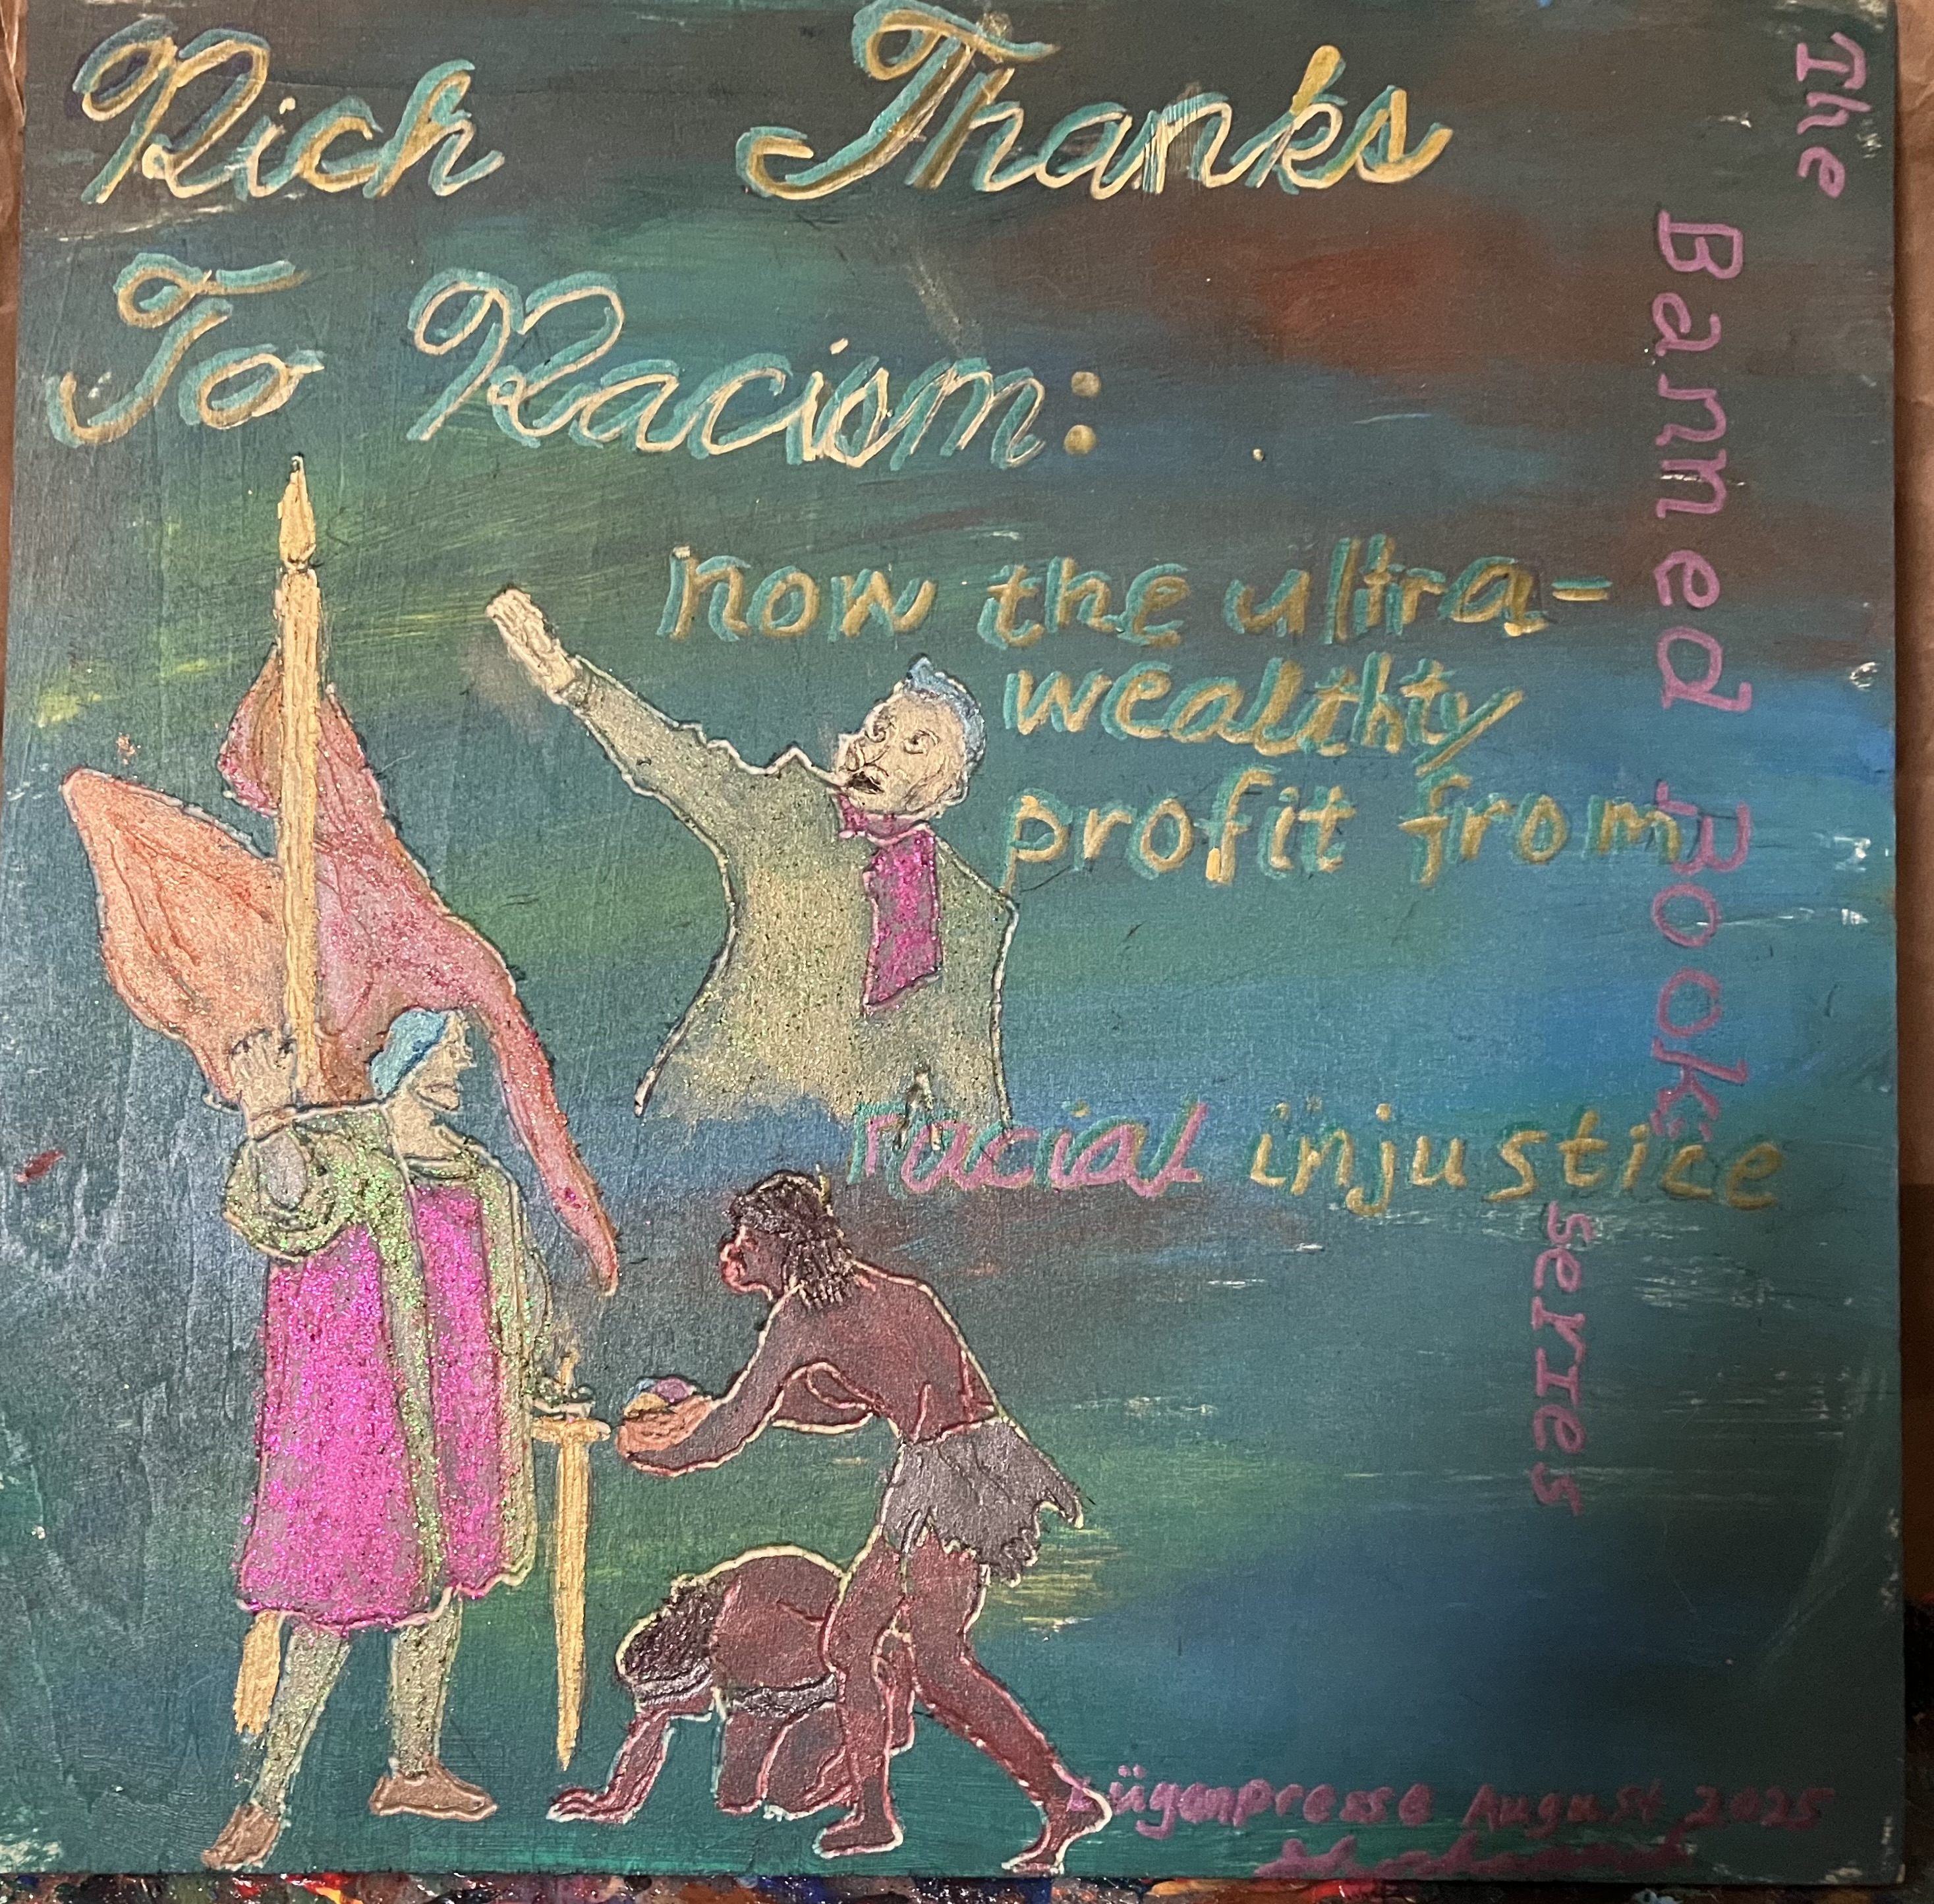 Rich Thanks
To Racism:
how the ultra-
wealthy
profit from
racial injustice
The Banned Book:
series
Lügenpresse August 2025